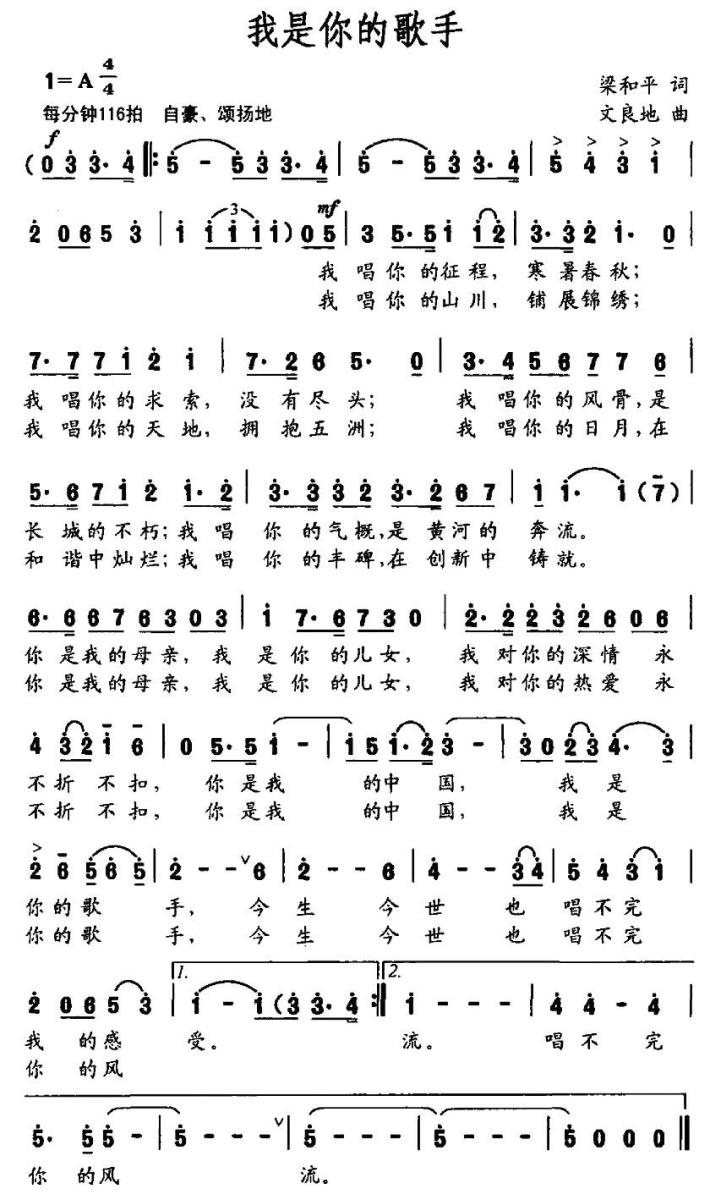 我是你的歌手
1=A 4/4
梁和平 词
每分钟116拍 自豪、颂扬地
文良地 曲
f
(0 3 3· 4 ‖: 5 - 5 3 3· 4 | 5 - 5 3 3· 4 | 5 4 3 1 |
mf
2 0 6 5 3 | 1 1 1 1 1) 0 5 | 3 5· 5 1 1 2 | 3· 3 2 1· 0
我 唱你 的征程, 寒暑春秋;
我 唱你 的山川, 铺展锦绣;
7· 7 7 1 2 1 | 7· 2 6 5· 0 | 3· 4 5 6 7 7 6
我 唱你的求索, 没有尽头; 我 唱你的风骨,是
我 唱你的天地, 拥抱五洲; 我 唱你的日月,在
5· 6 7 1 2 1· 2 | 3· 3 3 2 3· 2 6 7 | 1 1· 1 (7)
长 城的不朽;我 唱 你 的气概,是 黄河的 奔流。
和 谐中灿烂;我 唱 你 的丰碑,在 创新中 铸就。
6· 6 6 7 6 3 0 3 | 1 7· 6 7 3 0 | 2· 2 2 3 2 6 0 6 |
你 是我的母亲, 我 是你 的儿女, 我 对你的深情 永
你 是我的母亲, 我 是你 的儿女, 我 对你的热爱 永
4 3 2 1 6 | 0 5· 5 1 - | 1 5 1· 2 3 - | 3 0 2 3 4· 3
不折 不扣, 你是我 的中 国, 我 是
不折 不扣, 你是我 的中 国, 我 是
2 6 5 6 5 | 2 - - 6 | 2 - - 6 | 4 - - 3 4 | 5 4 3 1 |
你的歌 手, 今 生 今 世 也 唱不完
你的歌 手, 今 生 今 世 也 唱不完
1. 2.
2 0 6 5 3 | 1 - 1 (3 3· 4 :‖ 1 - - - | 4 4 - 4 |
我 的感 受。 流。 唱不 完
你 的风
5· 5 5 - | 5 - - - | 5 - - - | 5 - - - | 5 0 0 0 ‖
你 的风 流。